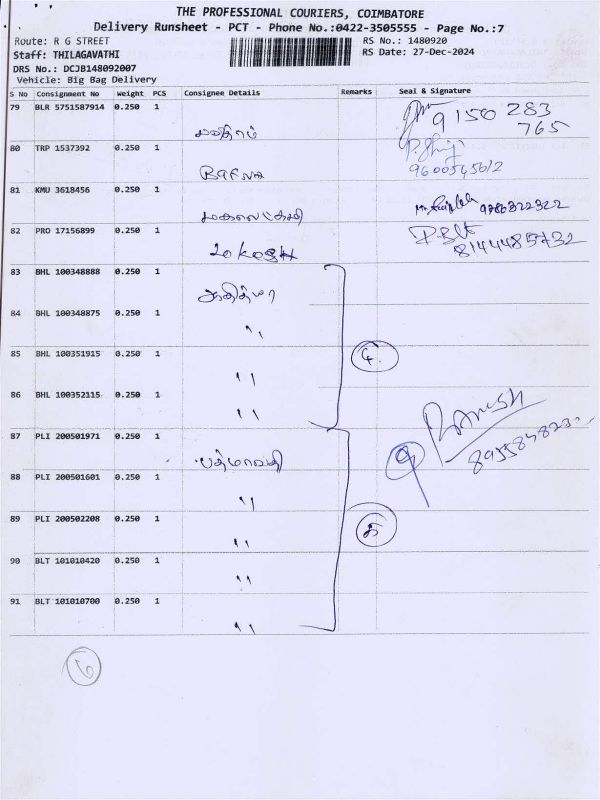 THE PROFESSIONAL COURIERS, COIMBATORE
Delivery Runsheet - PCT - Phone No.:0422-3505555 - Page No.:7
Route: R G STREET
RS No.: 1480920
Staff: THILAGAVATHI
RS Date: 27-Dec-2024
DRS No.: DCJB148092007
Vehicle: Big Bag Delivery
S No Consignment No Weight PCS Consignee Details Remarks Seal & Signature
79 BLR 5751587914 0.250 1
9150 283
765
80 TRP 1537392 0.250 1
Bafna
9600545612
81 KMU 3618456 0.250 1
9786322322
82 PRO 17156899 0.250 1
LokeSH
8144485732
83 BHL 100348888 0.250 1
84 BHL 100348875 0.250 1
"
85 BHL 100351915 0.250 1
"
86 BHL 100352115 0.250 1
"
87 PLI 200501971 0.250 1
பத்மாவதி
Ramesh
88 PLI 200501601 0.250 1
"
89 PLI 200502208 0.250 1
"
90 BLT 101010420 0.250 1
"
91 BLT 101010700 0.250 1
"